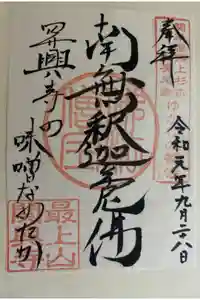 奉拝
令和元年九月二八日
南無釈迦尼佛
関興寺の
味噌なめたか
最上山
関興寺